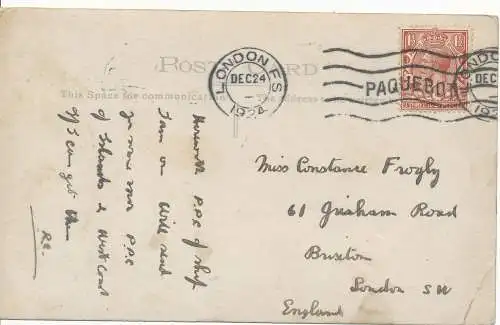 POST CARD
This Space for communication The address
LONDON F.S.
DEC 24
1924
PAQUEBOT
LONDON
DEC
192
1½ 1½
Herewith P.P.C of ship
I am on Will send
you some more P.P.C
of Islands & West Coast
if I can get them
R.C.
Miss Constance Frogly
61 Grisham Road
Brixton
London SW
England